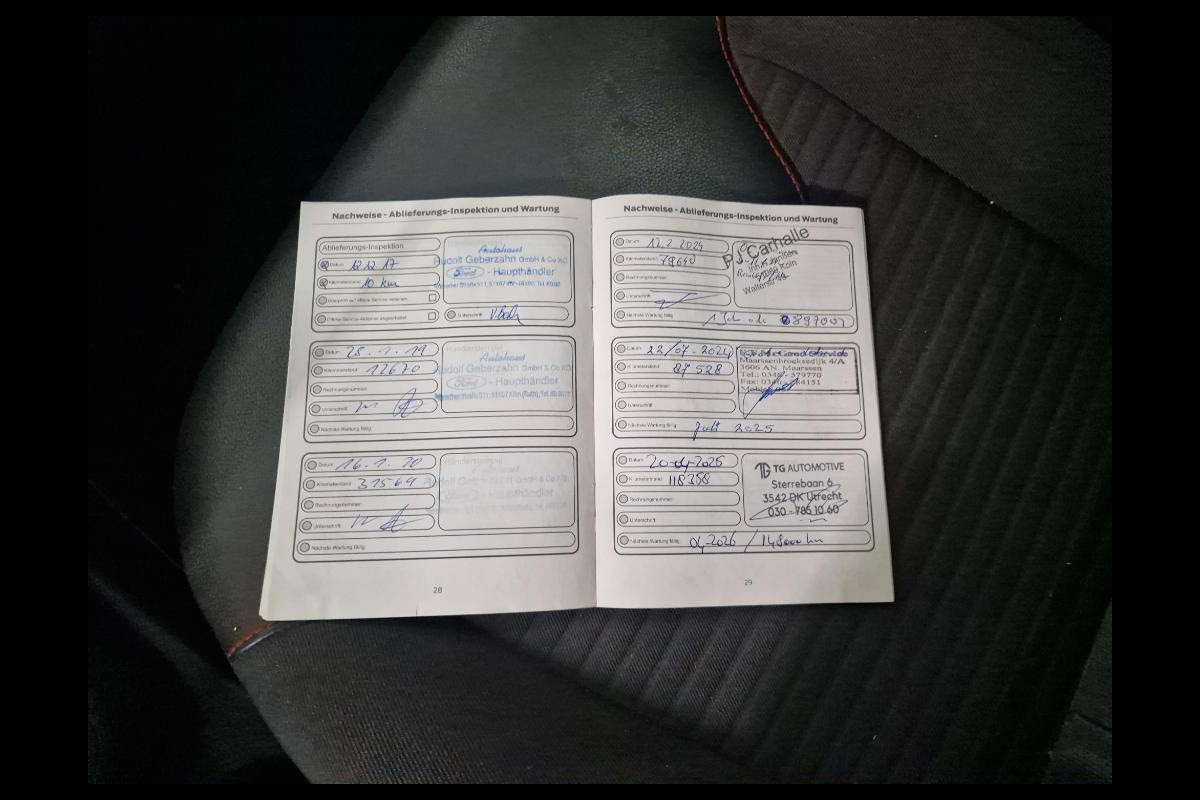 Nachweise - Ablieferungs-Inspektion und Wartung
Ablieferungs-Inspektion
Datum 12.12.17
Kilometerstand 10 km
Überprüft auf offene Service-Aktionen
Offene Service-Aktionen
Unterschrift
Autohaus
Rudolf Geberzahn GmbH & Co KG
Ford - Haupthändler
Datum 28.1.19
Kilometerstand 12670
Rechnungsnummer
Unterschrift
Nächste Wartung fällig
Händlerstempel
Autohaus
Rudolf Geberzahn GmbH & Co KG
Ford - Haupthändler
Datum 16.1.20
Kilometerstand 31569
Rechnungsnummer
Unterschrift
Nächste Wartung fällig
Händlerstempel
Haupthändler
28
Nachweise - Ablieferungs-Inspektion und Wartung
Datum 12.2.2024
Kilometerstand 79640
Rechnungsnummer
Unterschrift
Nächste Wartung fällig
P J Carhalle
Datum 22/07-2024
Kilometerstand 87528
Rechnungsnummer
Unterschrift
Nächste Wartung fällig Juli 2025
Maarssenbroeksedijk 4/A
3606 AN Maarssen
Datum 20-04-2025
Kilometerstand 118358
Rechnungsnummer
Unterschrift
Nächste Wartung fällig 04-2026 / 148000 km
TG AUTOMOTIVE
Sterrebaan 6
3542 DK Utrecht
030 - 785 10 60
29